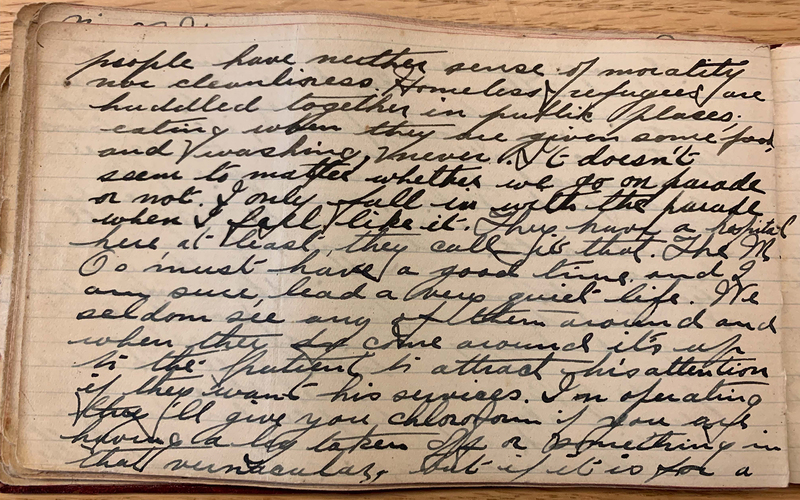 people have neither sense of morality
nor cleanliness. Homeless refugees are
huddled together in public places,
eating when they are given some food,
and washing, never. It doesn't
seem to matter whether we go on parade
or not. I only fall in with the parade
when I feel like it. They have a hospital
here at least, they call it that. The M.
Os must have a good time and I
am sure, lead a very quiet life. We
seldom see any of them around and
when they do come around it's up
to the patient to attract his attention
if they want his services. In operating
they'll give you chloroform if you are
having a leg taken off or something in
that vernacular, but if it is for a